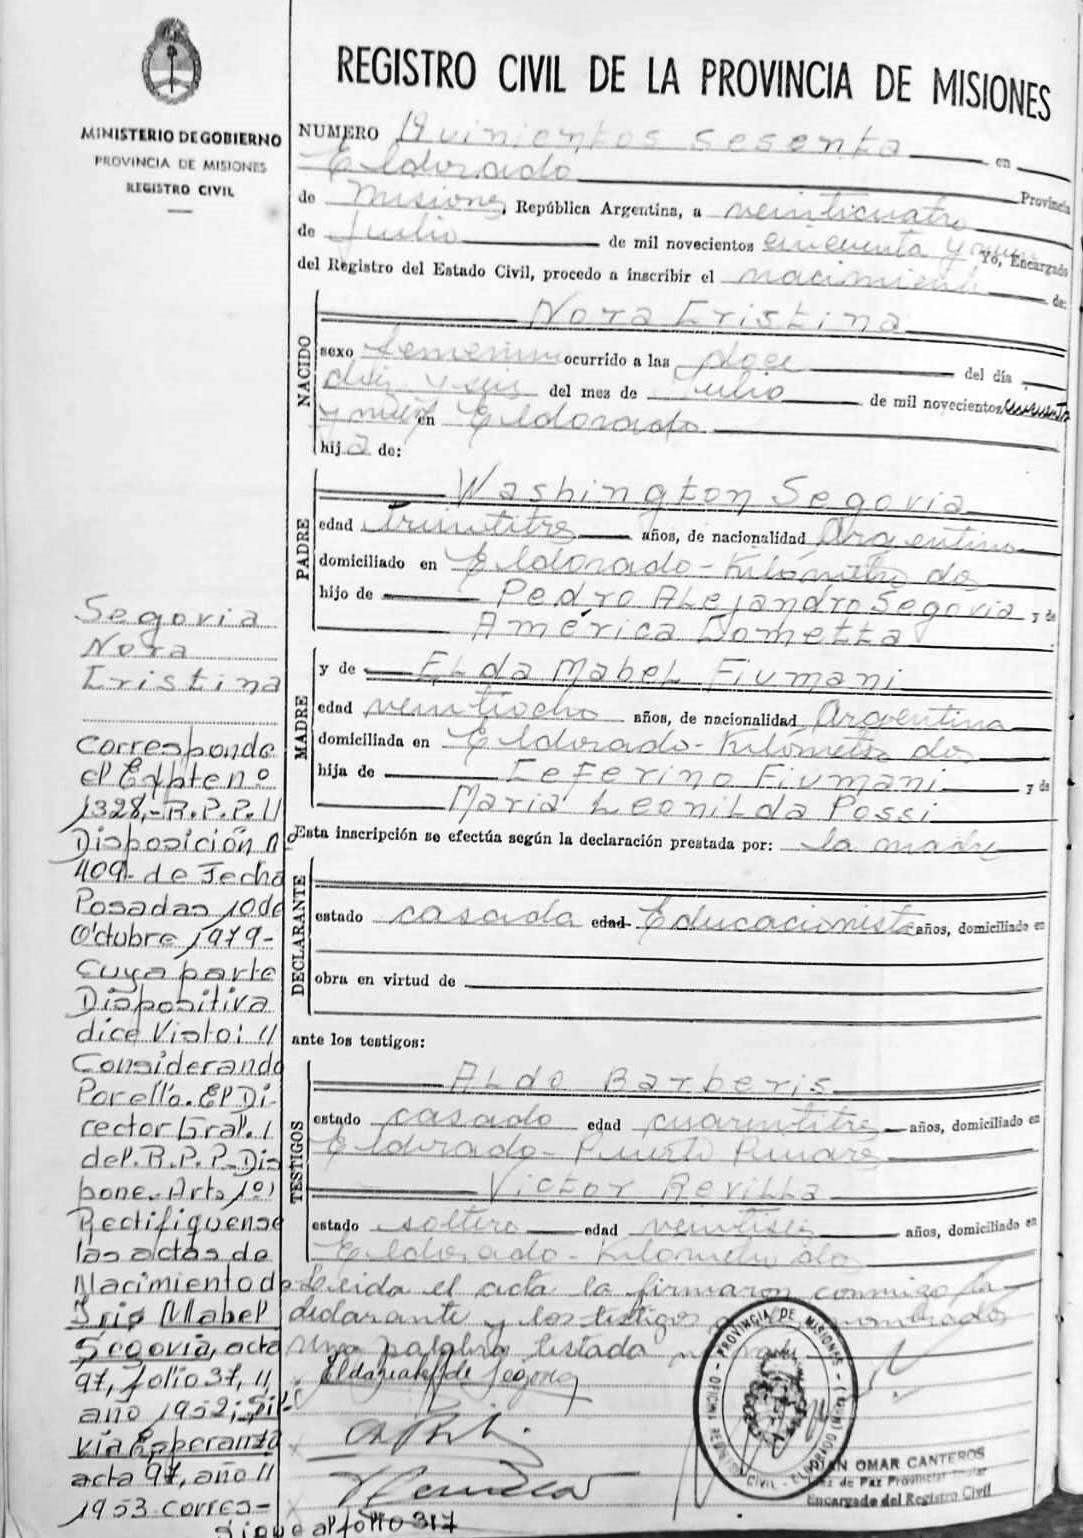 REGISTRO CIVIL DE LA PROVINCIA DE MISIONES
MINISTERIO DE GOBIERNO
PROVINCIA DE MISIONES
REGISTRO CIVIL
NUMERO Quinientos sesenta en
Eldorado Provincia
de Misiones, República Argentina, a veinticuatro
de Julio de mil novecientos cincuenta y nueve Yo, Encargado
del Registro del Estado Civil, procedo a inscribir el nacimiento de:
NACIDO
Nora Cristina
sexo femenino ocurrido a las doce del día
diez y seis del mes de Julio de mil novecientos cincuenta
y nueve en Eldorado
hija de:
PADRE
Washington Segovia
edad treintitres años, de nacionalidad Argentino
domiciliado en Eldorado-Kilómetro dos
hijo de Pedro Alejandro Segovia y de
América Dometta
MADRE
y de Elda Mabel Fiumani
edad veintiocho años, de nacionalidad Argentina
domiciliada en Eldorado-Kilómetro dos
hija de Ceferino Fiumani y de
Maria Leonilda Possi
Esta inscripción se efectúa según la declaración prestada por: la madre
DECLARANTE
estado casada edad Educacionista años, domiciliado en
obra en virtud de
ante los testigos:
TESTIGOS
Aldo Barberis
estado casado edad cuarentitres años, domiciliado en
Eldorado-Puerto Pinares
Victor Revilla
estado soltero edad veintiseis años, domiciliado en
Eldorado-Kilometro dos
Leida el acta la firmaron conmigo la
declarante y los testigos nombrados
una palabra testada no vale
Elda de Segovia
Segovia
Nora
Cristina
Corresponde
el Expte nº
1328,-R.P.P.//
Disposición nº
409- de fecha
Posadas 10 de
Octubre 1979-
Cuya parte
Dispositiva
dice Visto: //
Considerando
Por ello. El Di-
rector Gral. /
del. R.P.P. Dis
pone. Arto 1º)
Rectifiquense
las actas de
Nacimiento de
Iris Mabel
Segovia, acta
97, folio 37, //
año 1952; Sil-
via Esperanza
acta 97, año //
1953. corres-
Sigue al folio 317
PROVINCIA DE MISIONES
OFICINA REGISTRO CIVIL - ELDORADO
JUAN OMAR CANTEROS
Juez de Paz Provincial Titular
Encargado del Registro Civil